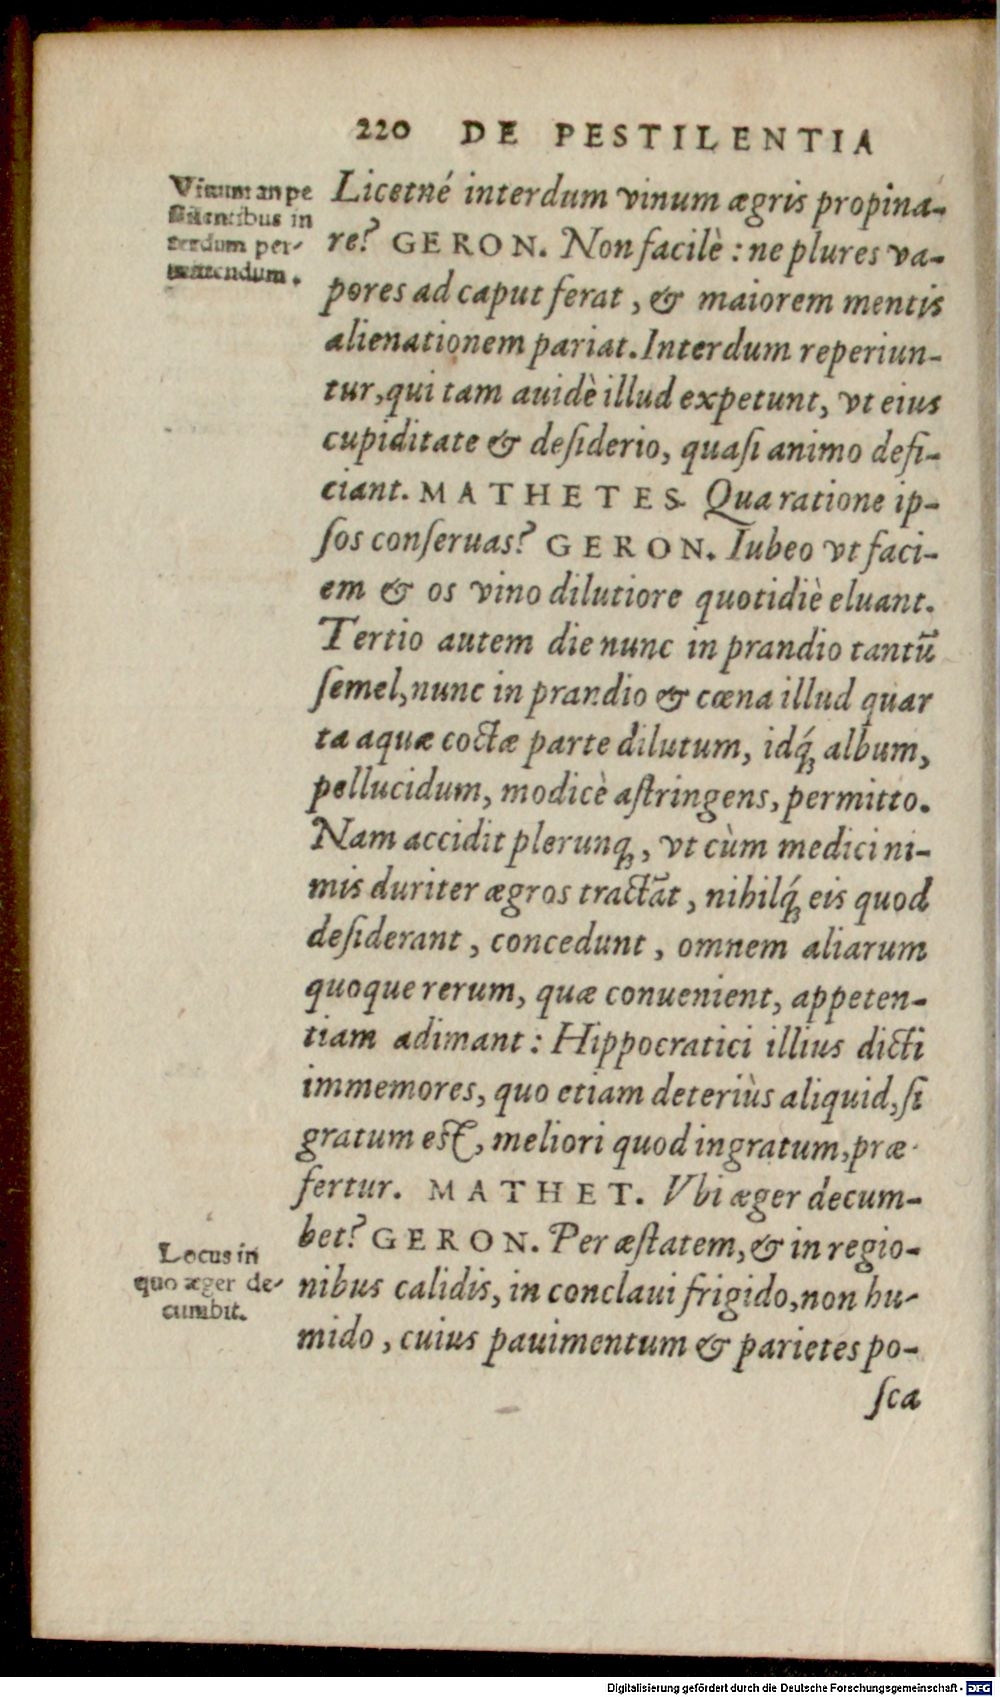 220 DE PESTILENTIA
Vinum an pe
stilentibus in
terdum per-
mittendum.
Licetné interdum vinum ægris propina-
re? GERON. Non facilè : ne plures va-
pores ad caput ferat, & maiorem mentis
alienationem pariat. Interdum reperiun-
tur, qui tam auidè illud expetunt, vt eius
cupiditate & deſiderio, quaſi animo defi-
ciant. MATHETES. Qua ratione ip-
ſos conſeruas? GERON. Iubeo vt faci-
em & os vino dilutiore quotidiè eluant.
Tertio autem die nunc in prandio tantũ
ſemel, nunc in prandio & cœna illud quar
ta aquæ coctæ parte dilutum, idq́; album,
pellucidum, modicè aſtringens, permitto.
Nam accidit plerunq;, vt cùm medici ni-
mis duriter ægros tractãt, nihilq́; eis quod
deſiderant, concedunt, omnem aliarum
quoque rerum, quæ conuenient, appeten-
tiam adimant : Hippocratici illius dicti
immemores, quo etiam deteriùs aliquid, ſi
gratum eſt, meliori quod ingratum, præ-
fertur. MATHET. Vbi æger decum-
bet? GERON. Per æſtatem, & in regio-
nibus calidis, in conclaui frigido, non hu-
mido, cuius pauimentum & parietes po-
Locus in
quo æger de-
cumbit.
ſca
Digitalisierung gefördert durch die Deutsche Forschungsgemeinschaft - DFG